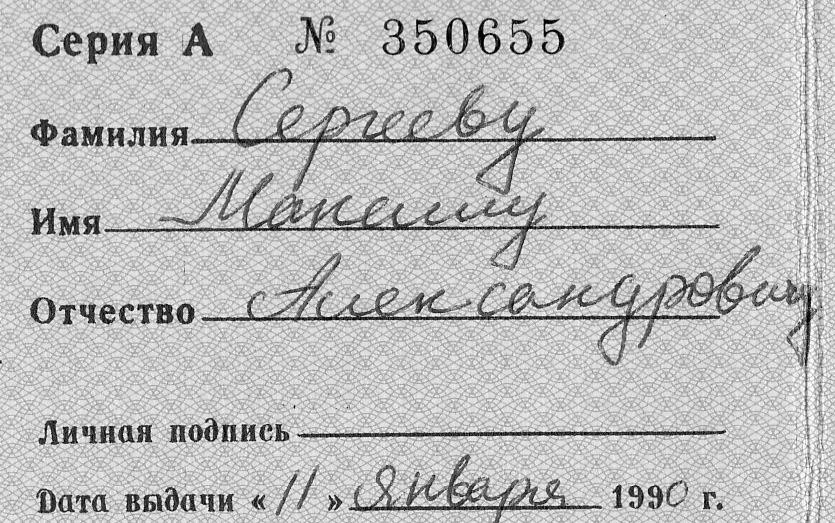 Серия А № 350655
Фамилия Сергееву
Имя Максиму
Отчество Александровичу
Личная подпись
Дата выдачи «11» января 1990 г.